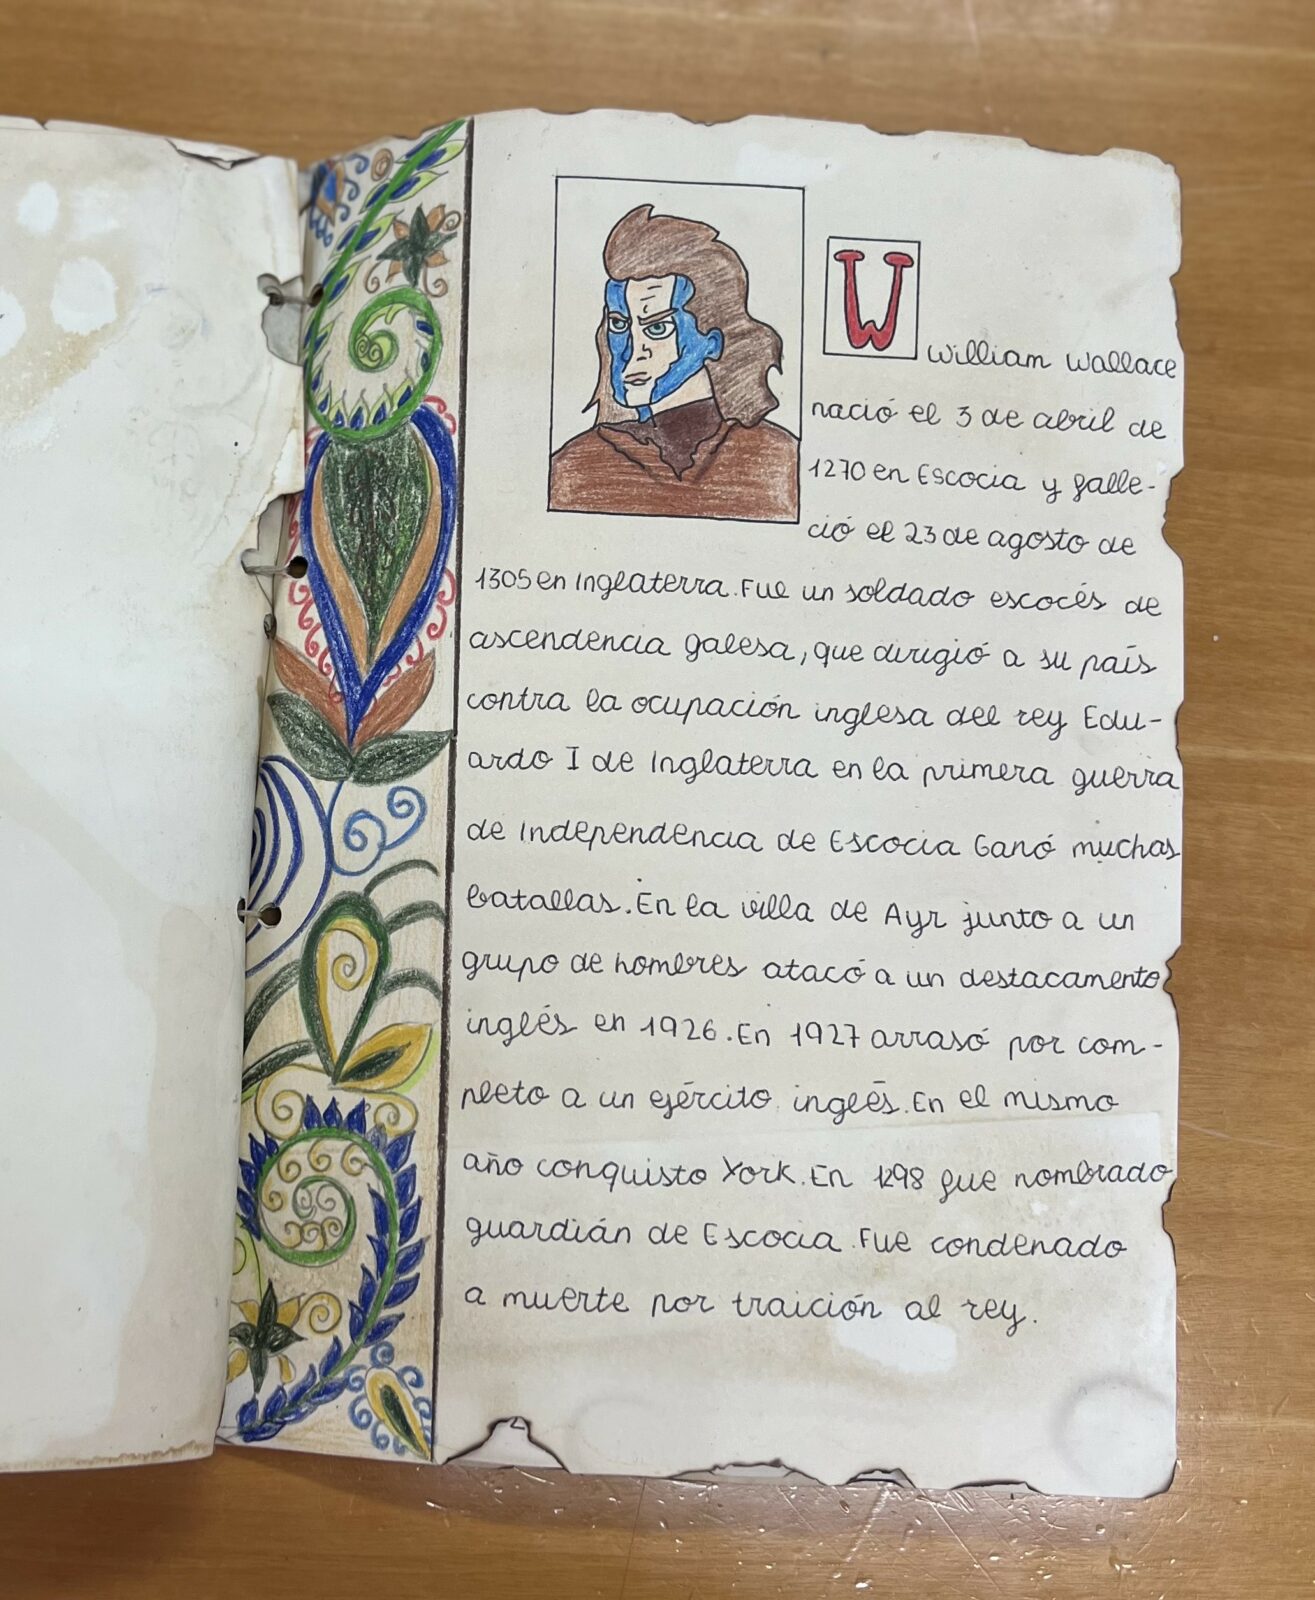 W
William Wallace
nació el 3 de abril de
1270 en Escocia y falle-
ció el 23 de agosto de
1305 en Inglaterra. Fue un soldado escocés de
ascendencia galesa, que dirigió a su país
contra la ocupación inglesa del rey Edu-
ardo I de Inglaterra en la primera guerra
de Independencia de Escocia Ganó muchas
batallas. En la villa de Ayr junto a un
grupo de hombres atacó a un destacamento
inglés en 1926. En 1927 arrasó por com-
pleto a un ejército inglés. En el mismo
año conquisto York. En 1298 fue nombrado
guardián de Escocia. Fue condenado
a muerte por traición al rey.